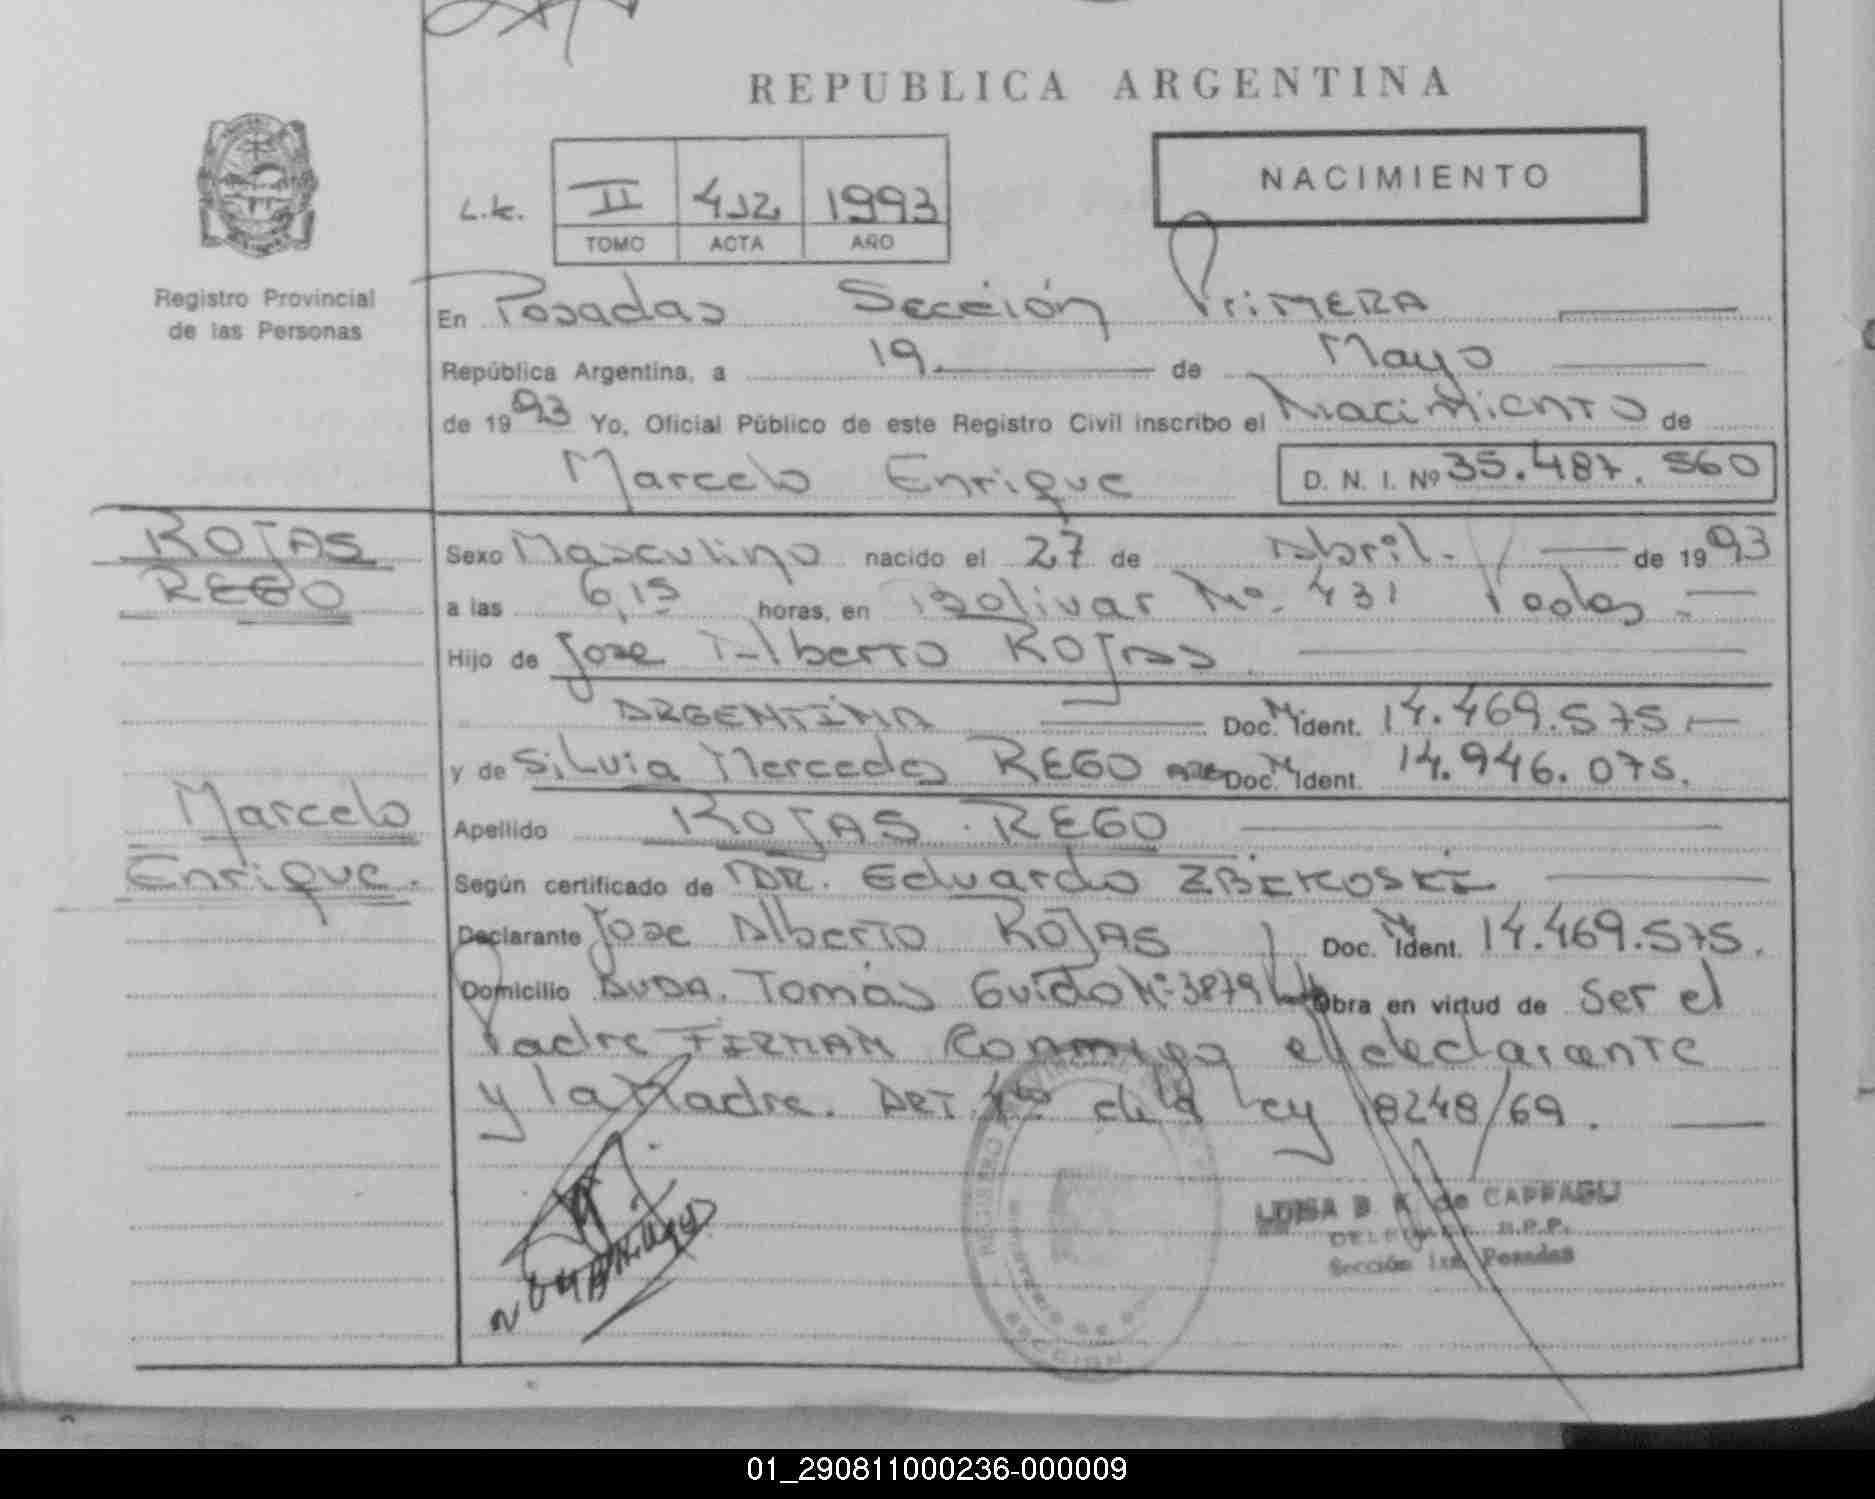 REPUBLICA ARGENTINA
NACIMIENTO
L.k.
II 412 1993
TOMO ACTA AÑO
Registro Provincial
de las Personas
En Posadas Sección Primera
República Argentina, a 19 de Mayo
de 1993 Yo, Oficial Público de este Registro Civil inscribo el Nacimiento de
Marcelo Enrique D. N. I. Nº 35.487.560
ROJAS
REGO
Sexo Masculino nacido el 27 de Abril. de 1993
a las 6,15 horas, en Bolivar Nº. 431 Pdas.
Hijo de Jose Alberto ROJAS
ARGENTINA Doc. M Ident. 14.469.575.
y de Silvia Mercedes REGO ARG Doc. M Ident. 14.946.075.
Marcelo
Enrique.
Apellido ROJAS . REGO
Según certificado de DR. Eduardo ZBIKOSKI
Declarante Jose Alberto ROJAS Doc. M Ident. 14.469.575.
Domicilio AVDA. Tomás Guido Nº 3879 Obra en virtud de Ser el
Padre FIRMAN Conmigo el declarante
y la Madre. ART. 4to de la Ley 18248/69.
REGISTRO PROVINCIAL
MINISTERIO DE
MISIONES
LUISA B K de CAPPAGLI
DELEGADA R.P.P.
Sección 1ra Posadas
01_290811000236-000009